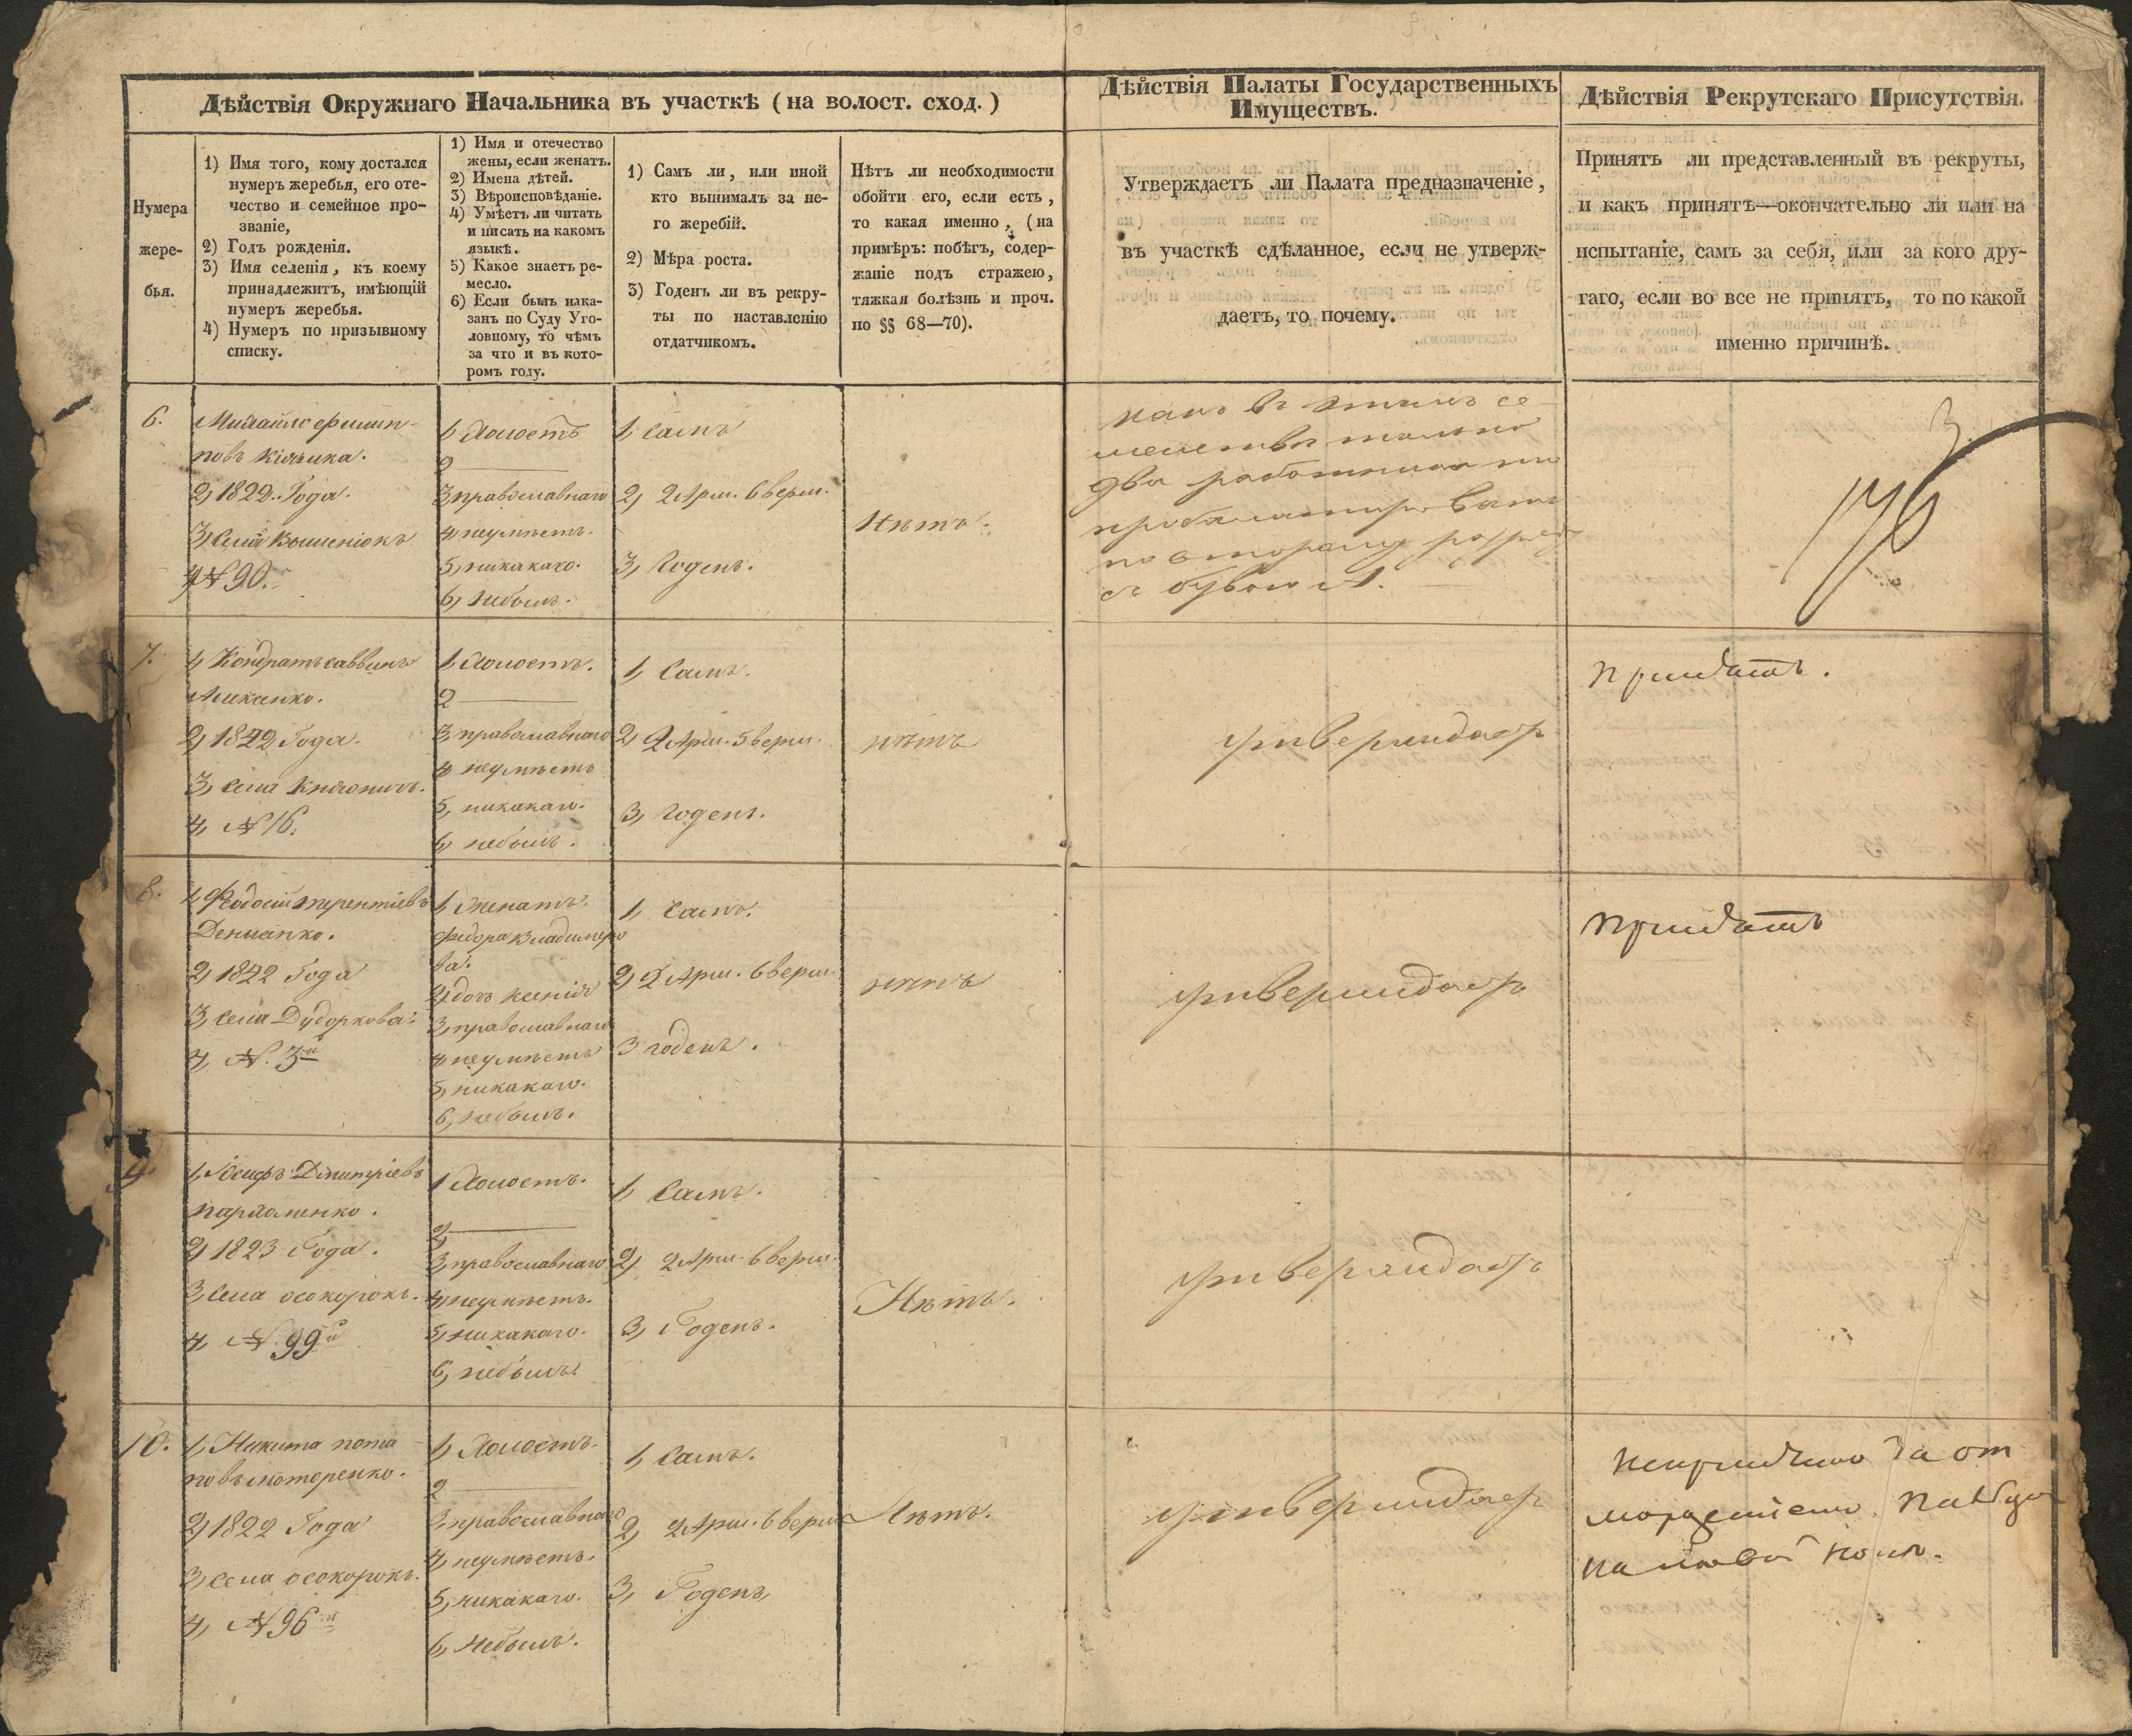 Дѣйствія Окружнаго Начальника въ участкѣ (на волост. сход.)
Дѣйствія Палаты Государственныхъ
Имуществъ.
Дѣйствія Рекрутскаго Присутствія.
Нумера
жере-
бья.
1) Имя того, кому достался
нумеръ жеребья, его оте-
чество и семейное про-
званіе,
2) Годъ рожденія.
3) Имя селенія, къ коему
принадлежитъ, имѣющій
нумеръ жеребья.
4) Нумеръ по призывному
списку.
1) Имя и отечество
жены, если женатъ.
2) Имена дѣтей.
3) Вѣроисповѣданіе.
4) Умѣетъ ли читать
и писать на какомъ
языкѣ.
5) Какое знаетъ ре-
месло.
6) Если былъ нака-
занъ по Суду Уго-
ловному, то чѣмъ
за что и въ кото-
ромъ году.
1) Самъ ли, или иной
кто вынималъ за не-
го жеребій.
2) Мѣра роста.
3) Годенъ ли въ рекру-
ты по наставленію
отдатчикомъ.
Нѣтъ ли необходимости
обойти его, если есть,
то какая именно, (на
примѣръ: побѣгъ, содер-
жаніе подъ стражею,
тяжкая болѣзнь и проч.
по §§ 68—70).
Утверждаетъ ли Палата предназначеніе,
въ участкѣ сдѣланное, если не утверж-
даетъ, то почему.
Принятъ ли представленный въ рекруты,
и какъ принятъ—окончательно ли или на
испытаніе, самъ за себя, или за кого дру-
гаго, если во все не принятъ, то по какой
именно причинѣ.
6.
Михайло филип-
повъ
2, 1822. Года.
3, Села
4, № 90.
1, Холостъ
2
3, православнаго
4, неумѣетъ.
5, никакаго.
6, небылъ.
1, Самъ
2, 2 Арш. 6 верш.
3, Годенъ.
Нѣтъ.
два работника
с
7.
1, Кондратъ саввинъ
2, 1842 Года.
3, Села Княжичъ.
4, № 16.
1, Холостъ.
2
3, православнаго
4, неумѣетъ
5, никакаго.
6, небылъ.
1, Самъ.
2, 2 Арш. 5 верш.
3, годенъ.
нѣтъ
утверждаетъ
8.
1, Феодосій терентіевъ
2, 1842 Года
3, села Дударкова
4, №. 3й
1, Женатъ.
федора Владимеро
ва.
2, дочь ксенія
3, православнаго
4, неумѣетъ
5, никакаго.
6, небылъ.
1, Самъ.
2, 2 Арш. 6 верш.
3 годенъ.
нѣтъ
утверждаетъ
9.
1, Іосифъ Дмитріевъ
пархоменко.
2, 1823 Года.
3, Села осокорокъ.
4, № 99й
1, Холостъ.
2,
3, православнаго
4, неумѣетъ.
5, никакаго.
6, небылъ.
1, Самъ.
2, 2 Арш. 6 верш.
3, Годенъ.
Нѣтъ.
утверждаетъ
10.
1, Никита пота
повъ моторенко.
2, 1822 Года
3, села осокорокъ.
4, № 96й
1, Холостъ.
2
3, православнаго
4, неумѣетъ.
5, никакаго.
6, небылъ.
1, Самъ.
2, 2 Арш. 6 верш
3, Годенъ,
Нѣтъ.
утверждаетъ
за от